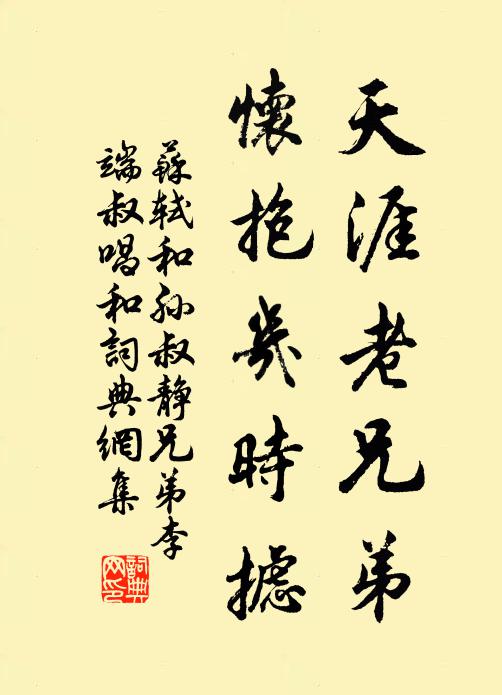 天涯老兄弟
懷抱幾時攄
蘇軾和孫叔靜兄弟李
端叔唱和詞典網集
詞典
网印